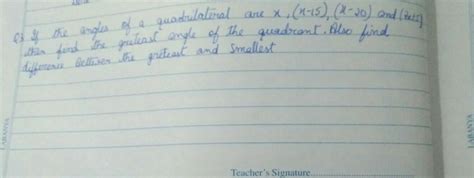 Q3 If the angles of a quadrilateral are x, (x-15), (x-20) and
then find the greteast angle of the quadrant. Also find
difference between the greteast and smallest
Teacher's Signature
LABANYA
LABANYA